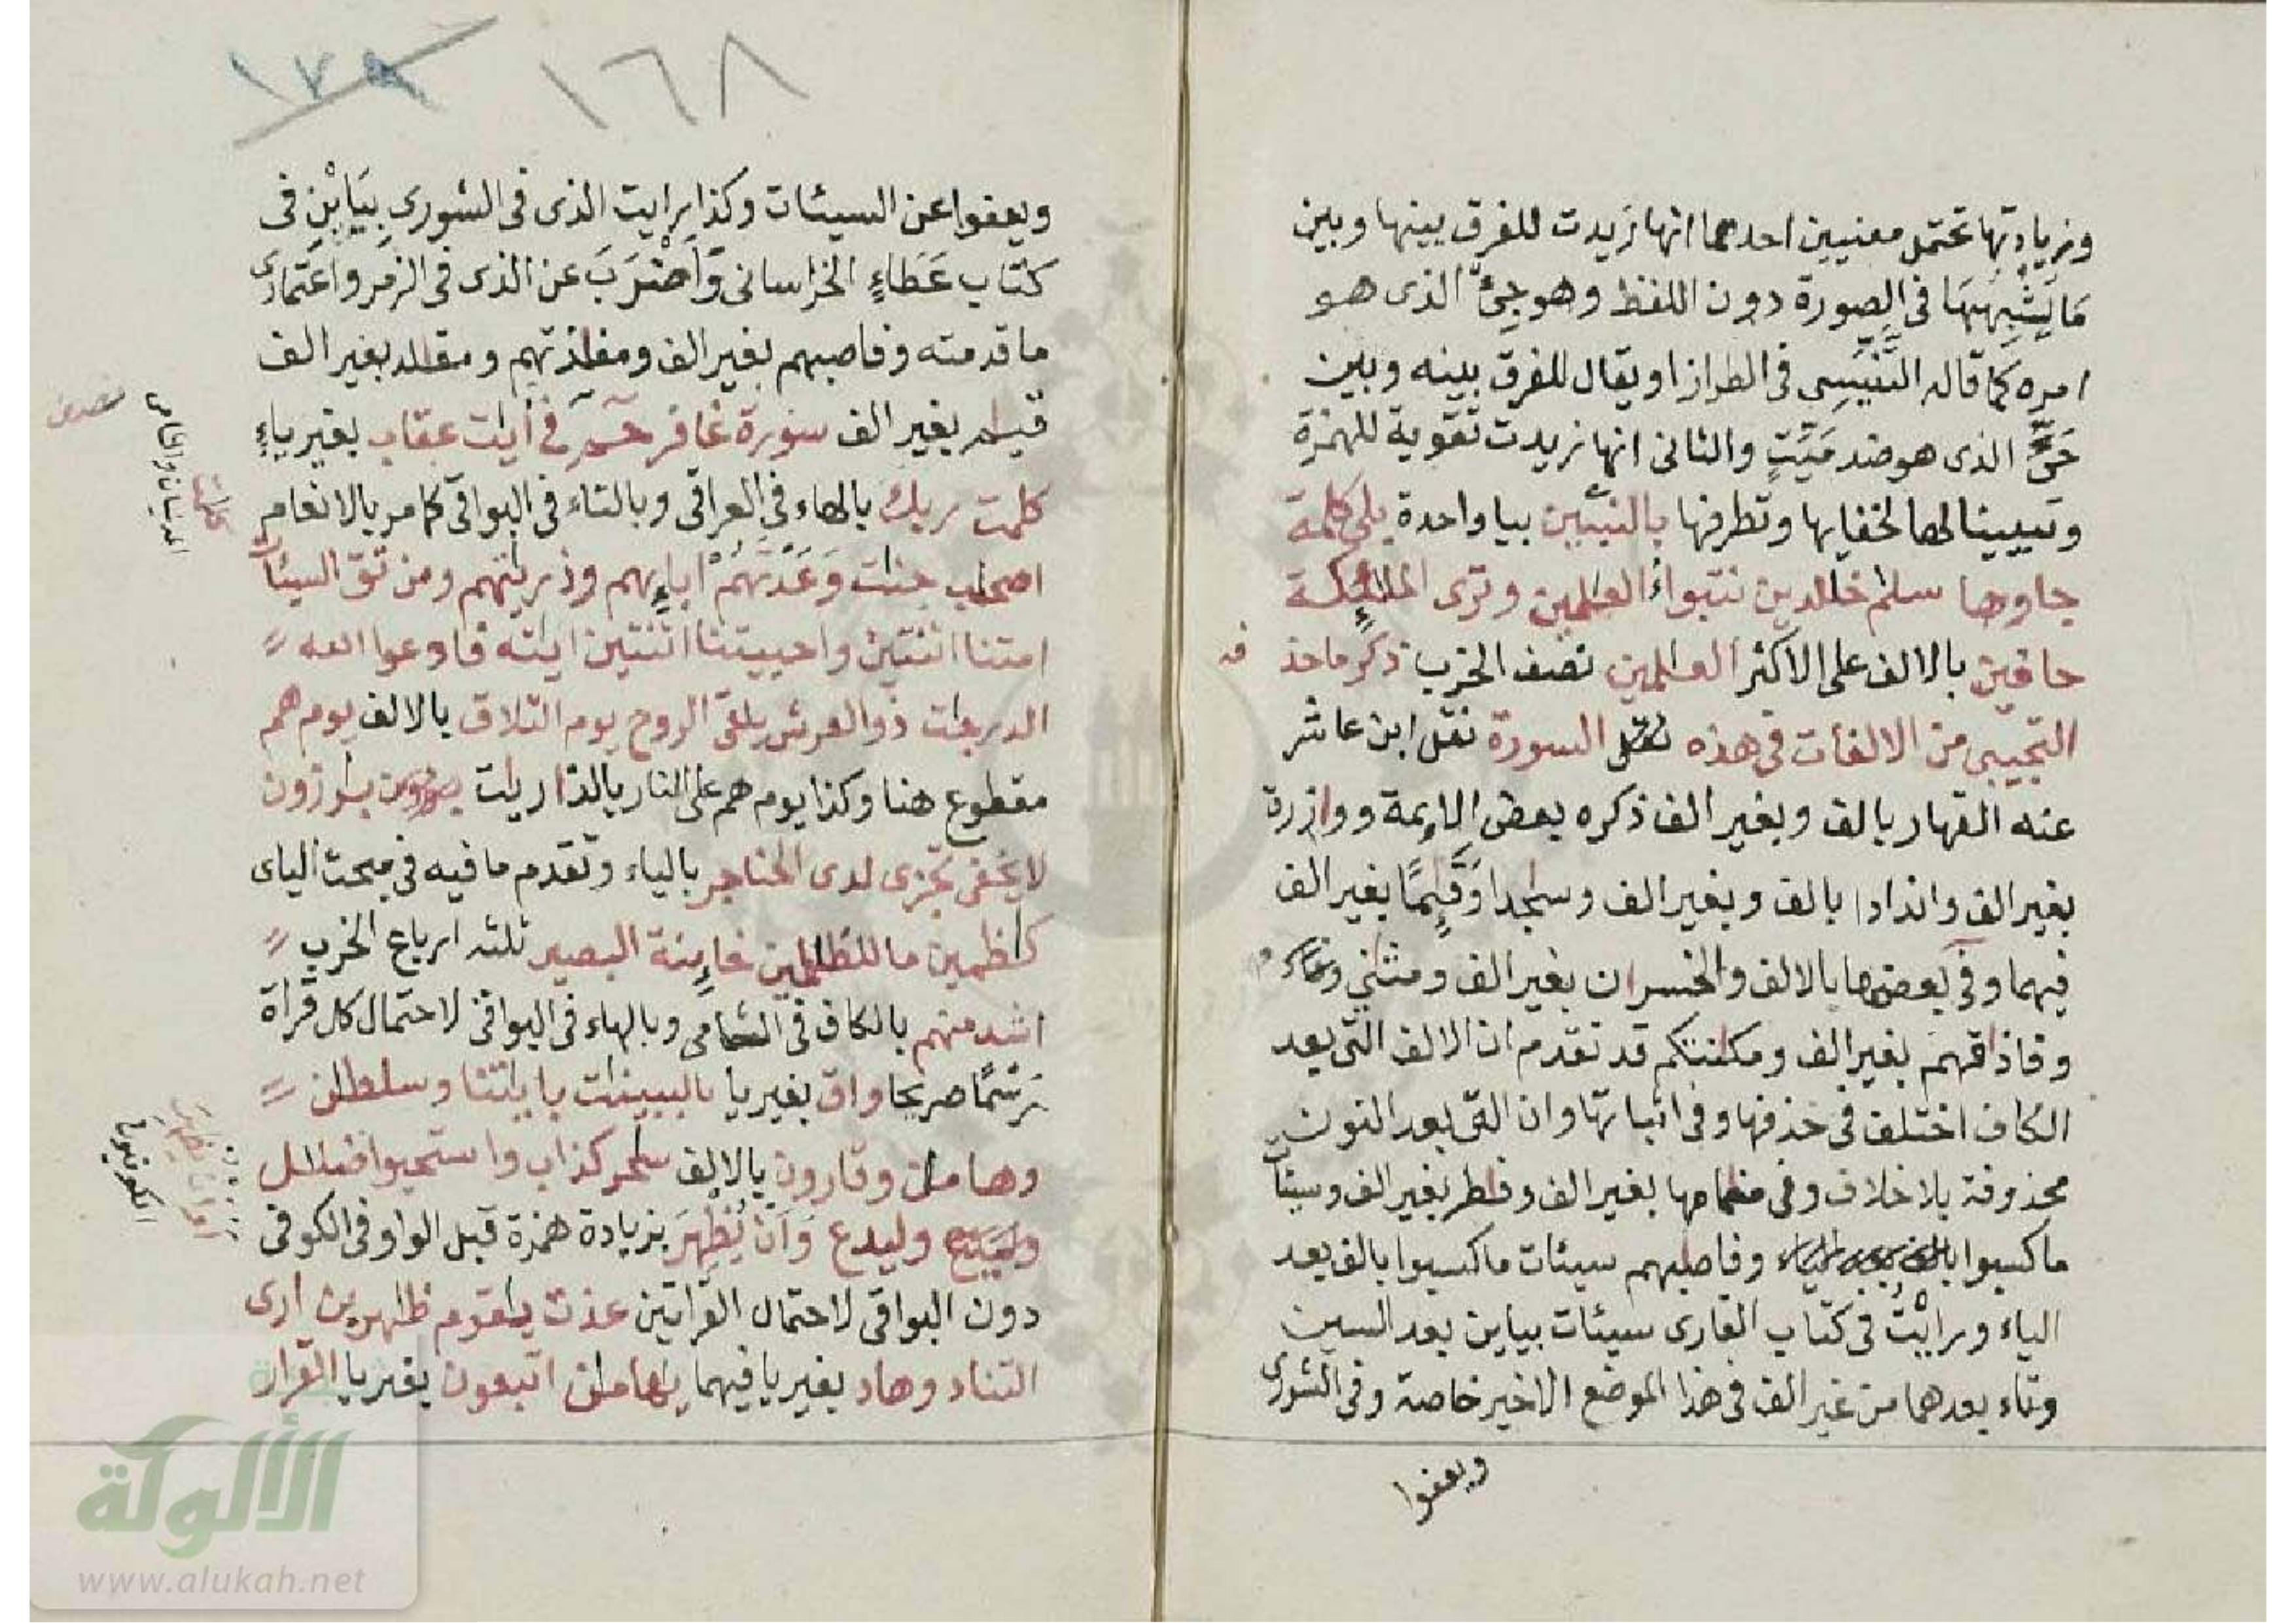 وزيادتها تحتمل معنيين احدهما انها زيدت للفرق بينها وبين
مَا يَشْبِهُهَا في الصورة دون اللفظ وهو جئ الذى هو
امره كما قاله التَّنَسِى في الطراز او يقال للفرق بينه وبين
حَىّ الذى هو ضد مَيّتٍ والثانى انها زيدت تقوية للهمزة
وتبيينا لها لخفايها وتطرفها بالنبيّين بيا واحدة بلى كلمة
جاوها سلم خلدين نتبوأ العلمين وترى الملئكة
حافين بالالف على الاكثر العلمين نصف الحزب ذكر ما حذ
فه
التجيبى من الالفات في هذه السورة نقل ابن عاشر
عنه القهار بالف وبغير الف ذكره بعض الايمة ووازرة
بغير الف واندادا بالف وبغير الف وسجدا وقيمًا بغير الف
فيهما وفي بعضها بالالف والخسران بغير الف ومثني
وفاذاقهم بغير الف ومكانتكم قد تقدم ان الالف التى بعد
الكاف اختلف فى حذفها وفى اثباتها وان التى بعد النون
محذوفة بلا خلاف وفى منامها بغير الف وفطر بغير الف وسيئات
ما كسبوا وفاصبهم سيئات ما كسبوا بالف بعد
الياء ورايْتُ فى كتاب الغازى سيئات بيايين بعد السين
وتاء بعدهما من غير الف فى هذا الموضع الاخير خاصة وفى الشورى
ويعفوا
١٦٨
١٧٨
ويعفوا عن السيئات وكذا رايت الذى فى الشورى بيَايْنِ فى
كتاب عَطَاءٍ الخراسانى وَاَضْرَبَ عن الذى فى الزمر واعتمادى
ما قدمته وفاصبهم بغير الف ومفازتهم ومقلد بغير الف
قيم بغير الف سورة غافر حم في أيت عقاب بغير ياءٍ
كلمت ربك بالهاء فى العراقى وبالتاء فى البواقى كما مر بالانعام
اصحب جنت وَعَدتَّهُمْ اباءِيهم وذريتهم ومن تق السيئات
امتنا اثنتين واحييتنا اثنتين ايته فادعوا الله
الدرجت ذوالعرش يلقى الروح يوم التلاق بالالف يوم هم
مقطوع هنا وكذا يوم هم على النار بالذاريات برزون
لا يخفى تجزى لدى الحناجر بالياء وتقدم ما فيه فى مبحث الياى
كظمين ما للظلمين خاينة البصير ثلثه ارباع الحزب
اشد منهم بالكاف فى الشامى وبالهاء فى البواقى لاحتمال كل قراة
رَسْمًا صريحا واق بغير يا بالبينت بايتنا وسلطن
وهامن وقارون بالالف سحر كذاب واستحيوا ضلل
وليدع وَاَنْ يُظهِرَ بزيادة همزة قبل الواو فى الكوفى
دون البواقى لاحتمال القراتين عذت يقوم ظهرين ارى
التناد وهاد بغير يا فيهما يهامن اتبعون بغير يا القرار
الألوكة
www.alukah.net